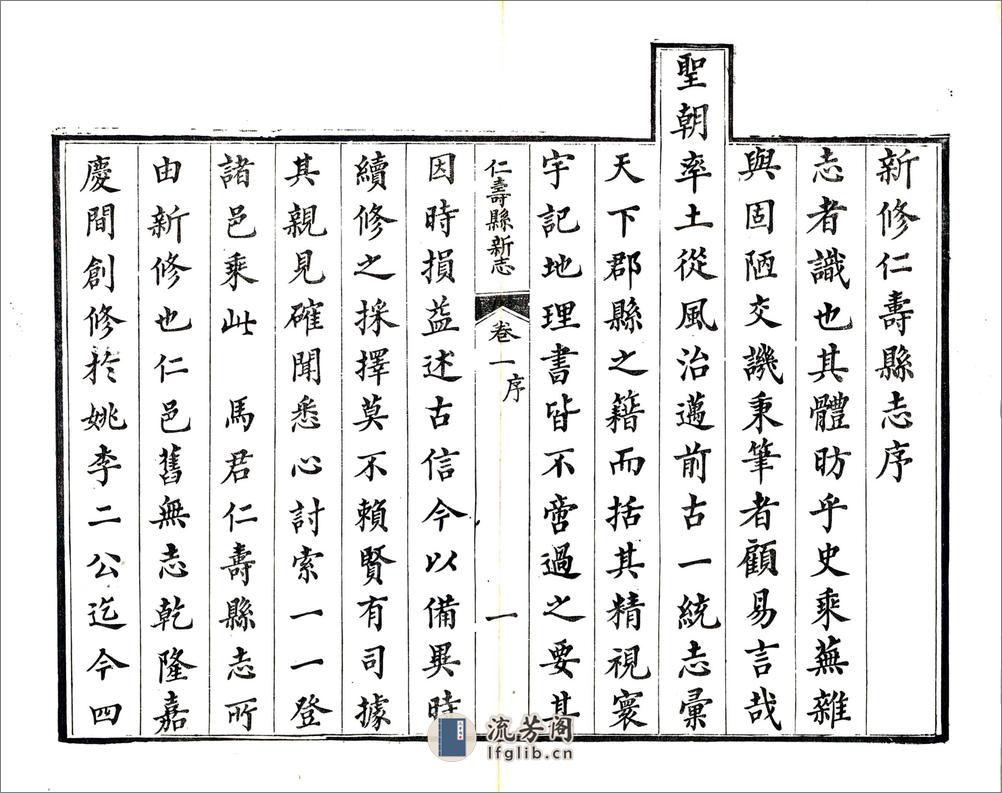 新修仁壽縣志序
志者識也其體昉乎史乘蕪雜
與固陋交譏秉筆者顧易言哉
聖朝率土從風治邁前古一統志彙
天下郡縣之籍而括其精視寰
宇記地理書皆不啻過之要其
仁壽縣新志 卷一 序 一
因時損益述古信今以備異時
續修之採擇莫不賴賢有司據
其親見確聞悉心討索一一登
諸邑乘此 馬君仁壽縣志所
由新修也仁邑舊無志乾隆嘉
慶間創修於姚李二公迄今四
流芳阁
lfglib.cn